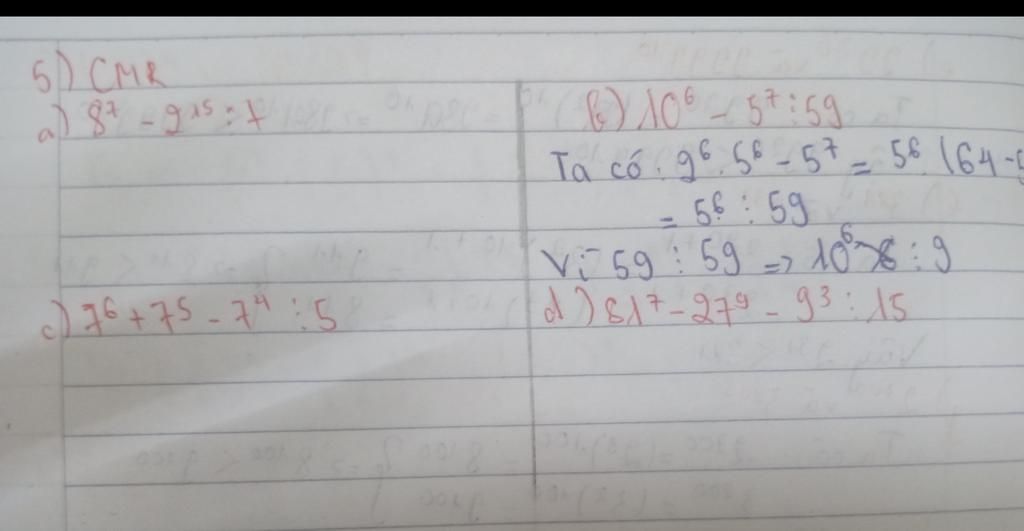 5) CMR
a) 8⁷ - 2¹⁵ ⋮ 7
b) 10⁶ - 5⁷ ⋮ 59
Ta có : 2⁶ . 5⁶ - 5⁷ = 5⁶ . (64 - 5
= 5⁶ ⋮ 59
Vì 59 ⋮ 59 => 10⁶ ⋮ 9
c) 7⁶ + 7⁵ - 7⁴ ⋮ 5
d) 81⁷ - 27⁹ - 9³ ⋮ 15